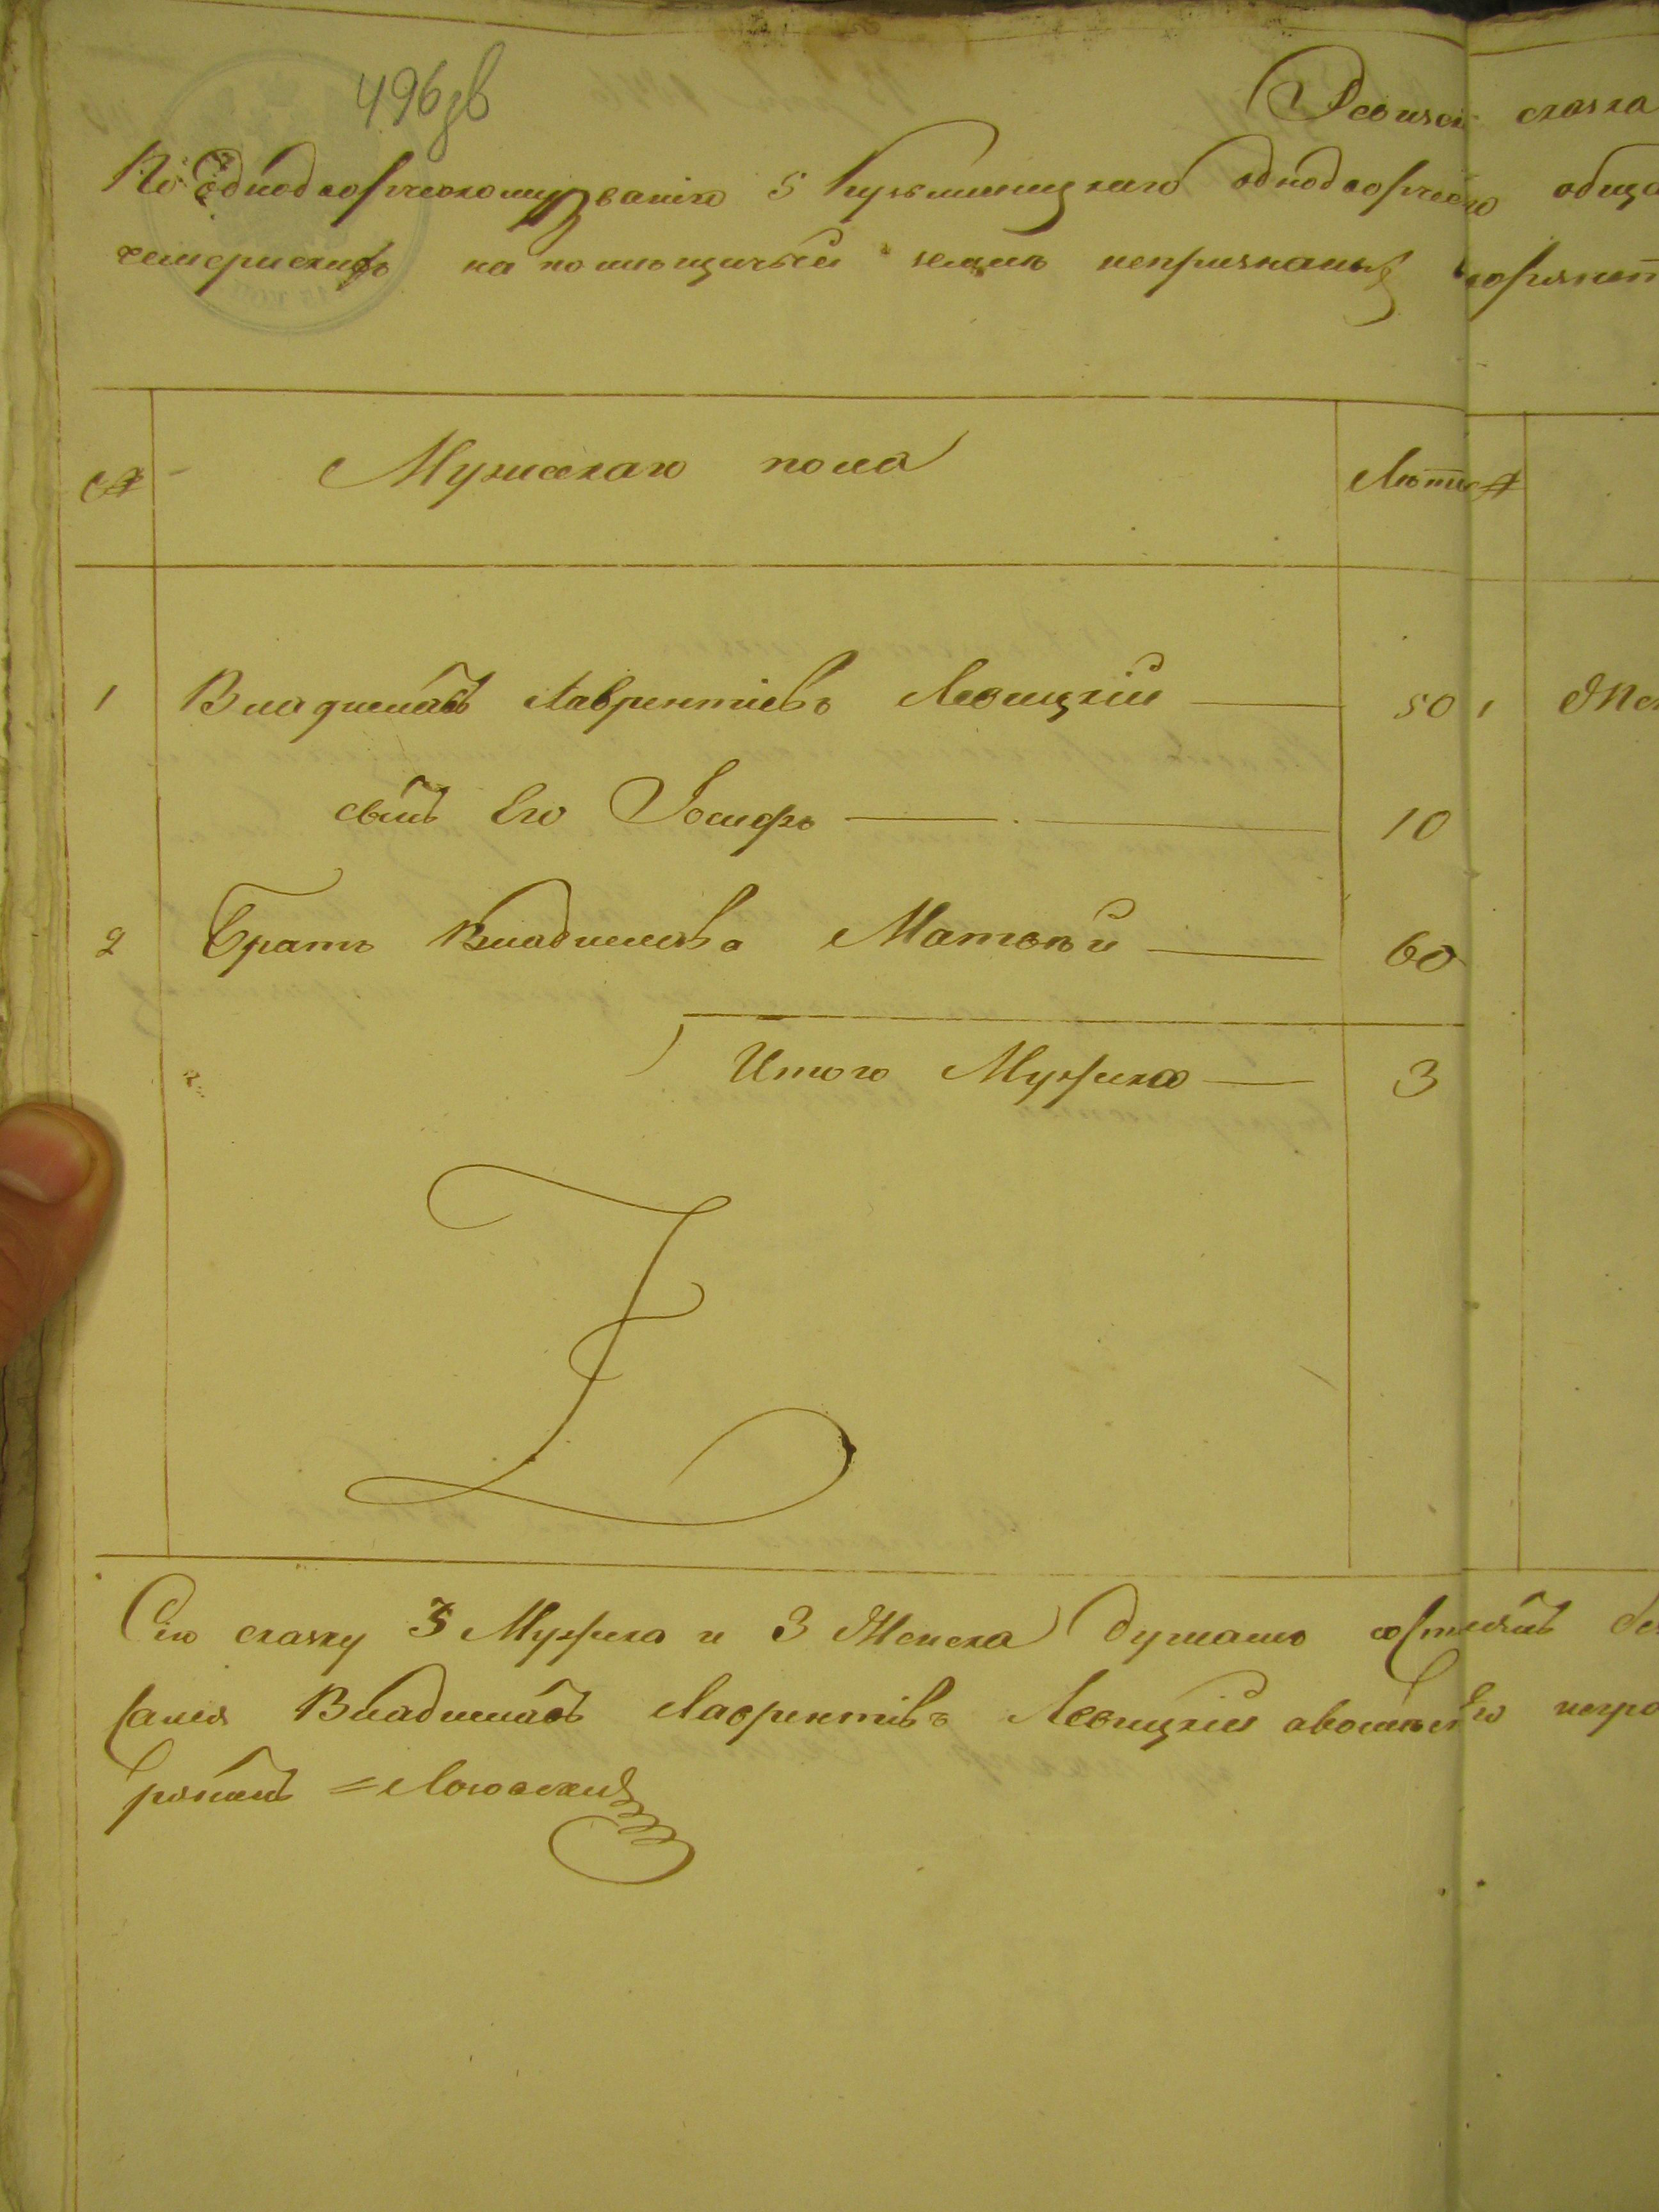 496 зв
Ревизск сказка
По Однодворческому званию 5 Кузьминецкаго однодворческо обще
Чемерискихъ на помѣщичьей землѣ непризнаных дворянет
№ Мужескаго пола Лѣта №
1 Владиславъ Лаврентіевъ Левицкій 50 1 Же
сынъ Его Іосифъ 10
2 Братъ Владислава Матвѣй 60
Итого Мужска 3
Сію сказку 3 Мужска и 3 Женска душамъ
Владиславъ Лаврентіевъ Левицкій авомѣсто Его негра